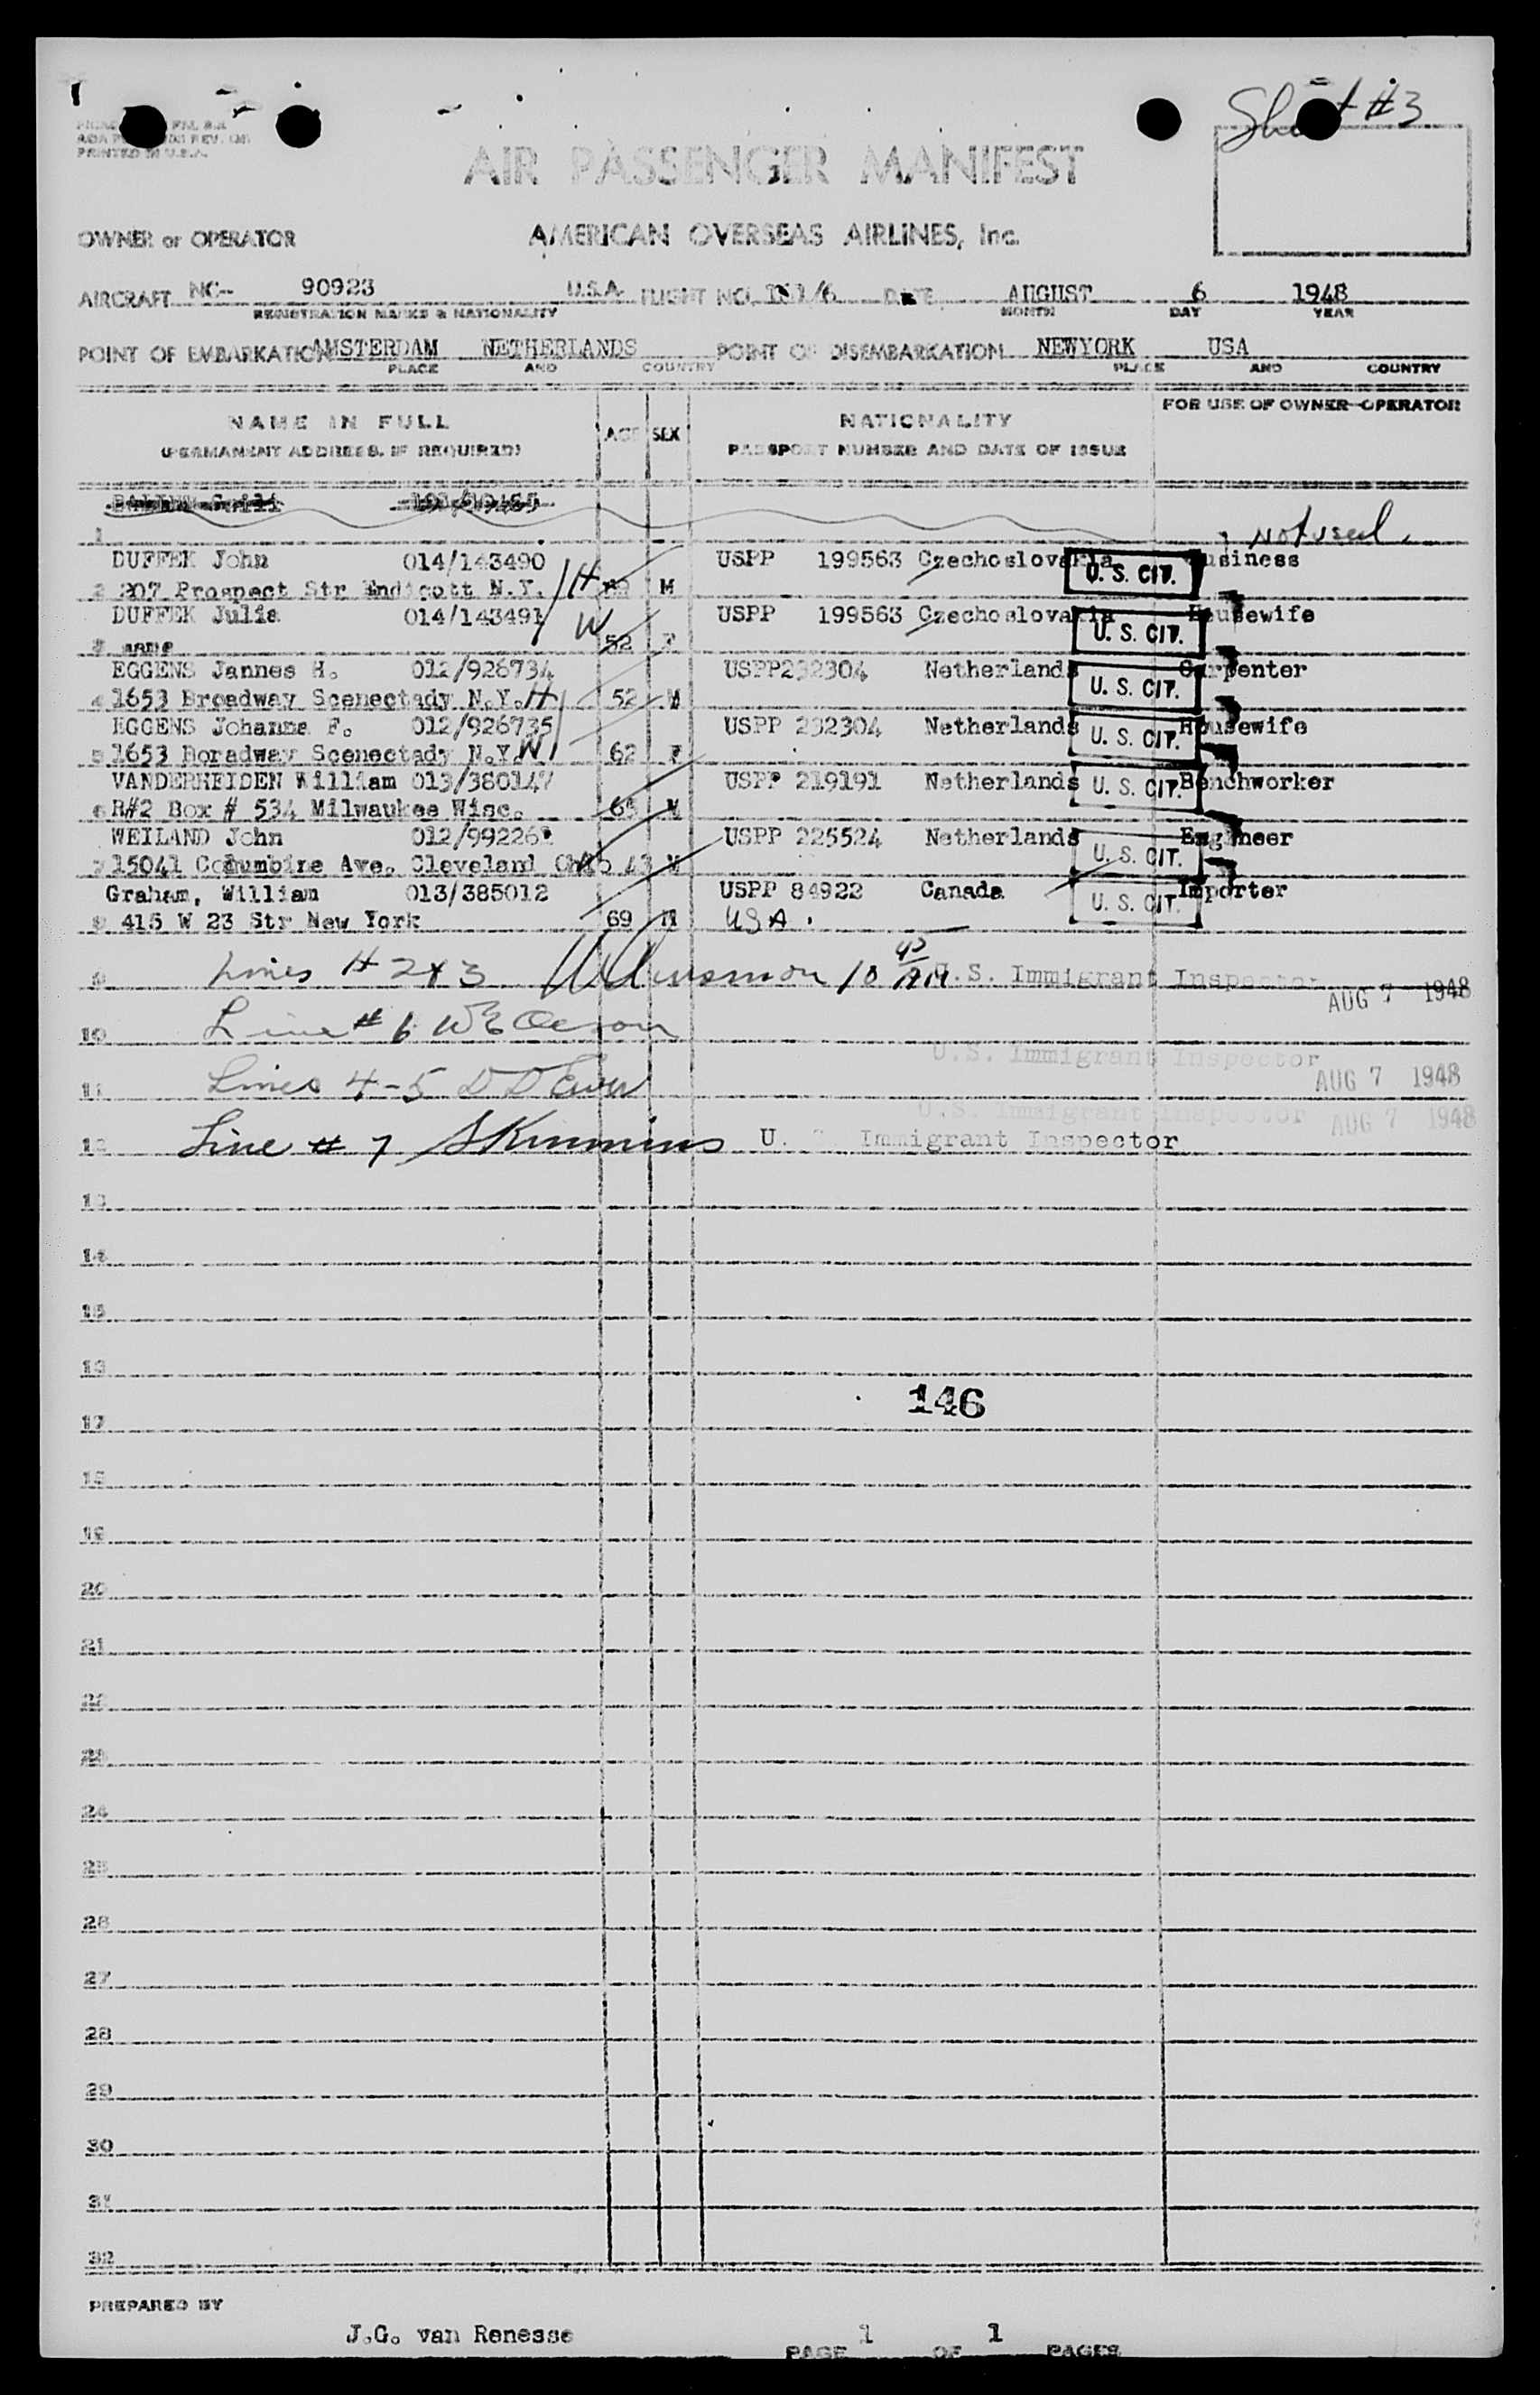 Sheet #3
PRINTED IN U.S.A.
AIR PASSENGER MANIFEST
OWNER or OPERATOR AMERICAN OVERSEAS AIRLINES, Inc.
AIRCRAFT NC-- 90923 U.S.A. FLIGHT NO. DATE AUGUST 6 1948
REGISTRATION MARKS & NATIONALITY MONTH DAY YEAR
POINT OF EMBARKATION AMSTERDAM NETHERLANDS POINT OF DISEMBARKATION NEWYORK USA
PLACE AND COUNTRY PLACE AND COUNTRY
FOR USE OF OWNER-OPERATOR
NAME IN FULL AGE SEX NATIONALITY
(PERMANENT ADDRESS, IF REQUIRED) PASSPORT NUMBER AND DATE OF ISSUE
1 Not used.
DUFFEK John 014/143490 USPP 199563 Czechoslovakia U. S. CIT. Business
2 207 Prospect Str Endicott N.Y. H M
DUFFEK Julia 014/143491 W USPP 199563 Czechoslovakia U. S. CIT. Housewife
3 same 52 F
EGGENS Jannes H. 012/926734 USPP232304 Netherlands U. S. CIT. Carpenter
4 1653 Broadway Scenectady N.Y. H 52 M
EGGENS Johanna F. 012/926735 USPP 232304 Netherlands U. S. CIT. Housewife
5 1653 Boradway Scenectady N.Y. W 62 F
VANDERHEIDEN William 013/380147 USPP 219191 Netherlands U. S. CIT. Benchworker
6 R#2 Box # 534 Milwaukee Wisc. 65 M
WEILAND John 012/992261 USPP 225524 Netherlands U. S. CIT. Engineer
7 15041 Columbine Ave. Cleveland Ohio 43 M
Graham, William 013/385012 USPP 84922 Canada U. S. CIT. Importer
8 415 W 23 Str New York 69 M USA.
9 Lines # 2 & 3 10 45 AM U.S. Immigrant Inspector AUG 7 1948
10 Line # 6
U.S. Immigrant Inspector
11 Lines 4-5 AUG 7 1948
U.S. Immigrant Inspector AUG 7 1948
12 Line # 7 SKimmins U. S. Immigrant Inspector
13
14
15
16
146
17
18
19
20
21
22
23
24
25
26
27
28
29
30
31
32
PREPARED BY
J.G. van Renesse
PAGE 1 OF 1 PAGES